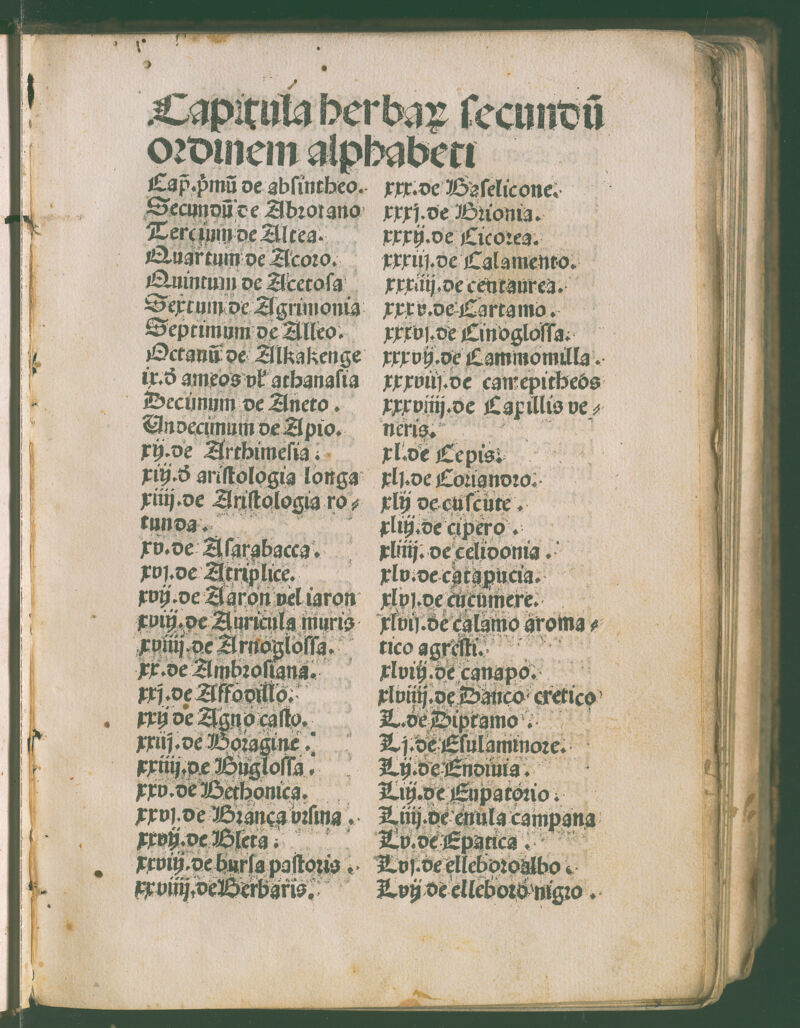 Capitula herbaꝝ ſecundū
ordinem alphabeti
Cap̄.p̄mū de abſintheo.
Secundū de Abrotano
Tercium de Altea.
Quartum de Acoro.
Quintum de Acetoſa
Sextum de Agrimonia
Septimum de Alleo.
Octauū de Alkakenge
ix.đ ameos vl̕ athanaſia
Decimum de Aneto.
Undecimum de Apio.
xij.de Arthimeſia.
xiij.đ ariſtologia longa
xiiij.de Ariſtologia ro⸗
tunda.
xv.de Aſarabacca.
xvj.de Atriplice.
xvij.de Aaron vel iaron
xviij.de Auricula muris
xviiij.de Arnogloſſa.
xx.de Ambroſiana.
xxj.de Affodillo.
xxij de Agno caſto.
xxiij.de Boragine.
xxiiij.de Bugloſſa.
xxv.de Bethonica.
xxvj.de Branca vrſina.
xxvij.de Bleta.
xxviij.de burſa paſtoris.
xxviiij.de Berbaris.
xxx.de Baſelicone.
xxxj.de Brionia.
xxxij.de Cicorea.
xxxiij.de Calamento.
xxxiiij.de centaurea.
xxxv.de Cartamo.
xxxvj.de Cinogloſſa.
xxxvij.de Cammomilla.
xxxviij.de camepitheos
xxxviiij.de Capillis ve⸗
neris.
xl.de Cepis.
xlj.de Coriandro.
xlij de cuſcute.
xliij.de cipero.
xliiij.de celidonia.
xlv.de catapucia.
xlvj.de cucumere.
xlvij.de calamo aroma⸗
tico agreſti.
xlviij.de canapo.
xlviiij.de Dauco cretico
L.de Diptamo.
Lj.de Eſulaminore.
Lij.de Endiuia.
Liij.de Eupatorio.
Liiij.de enula campana
Lv.de Epatica.
Lvj.de elleboroalbo.
Lvij de elleboro nigro.